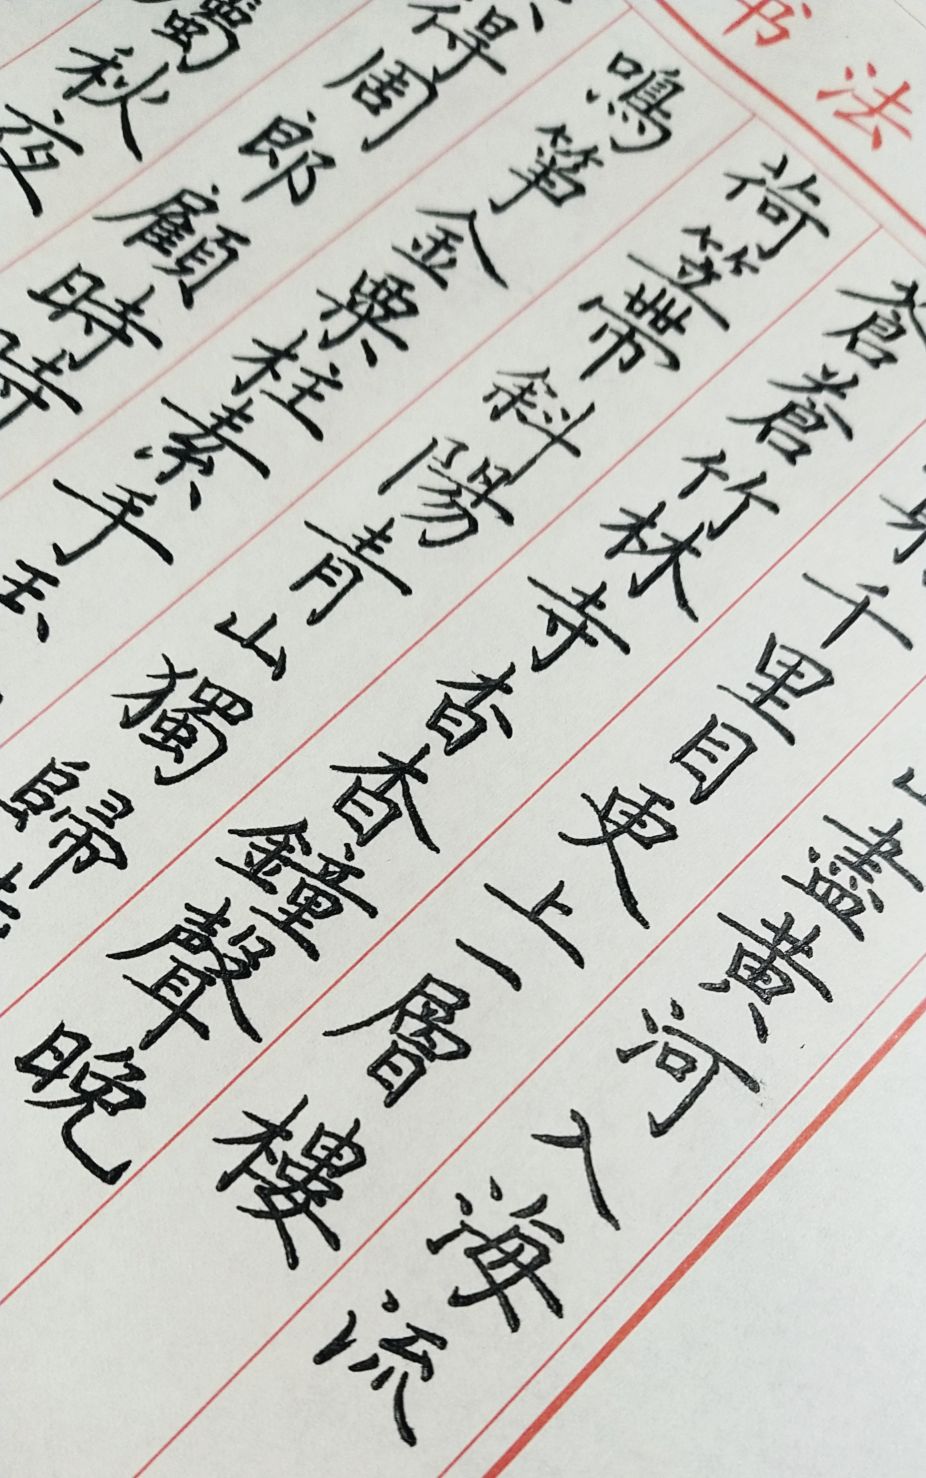 书法
山盡黃河入海流
千里目更上一層樓
蒼蒼竹林寺杳杳鐘聲晚
荷笠帶斜陽青山獨歸
鳴箏金粟柱素手玉
得周郎顧時時
屬秋夜